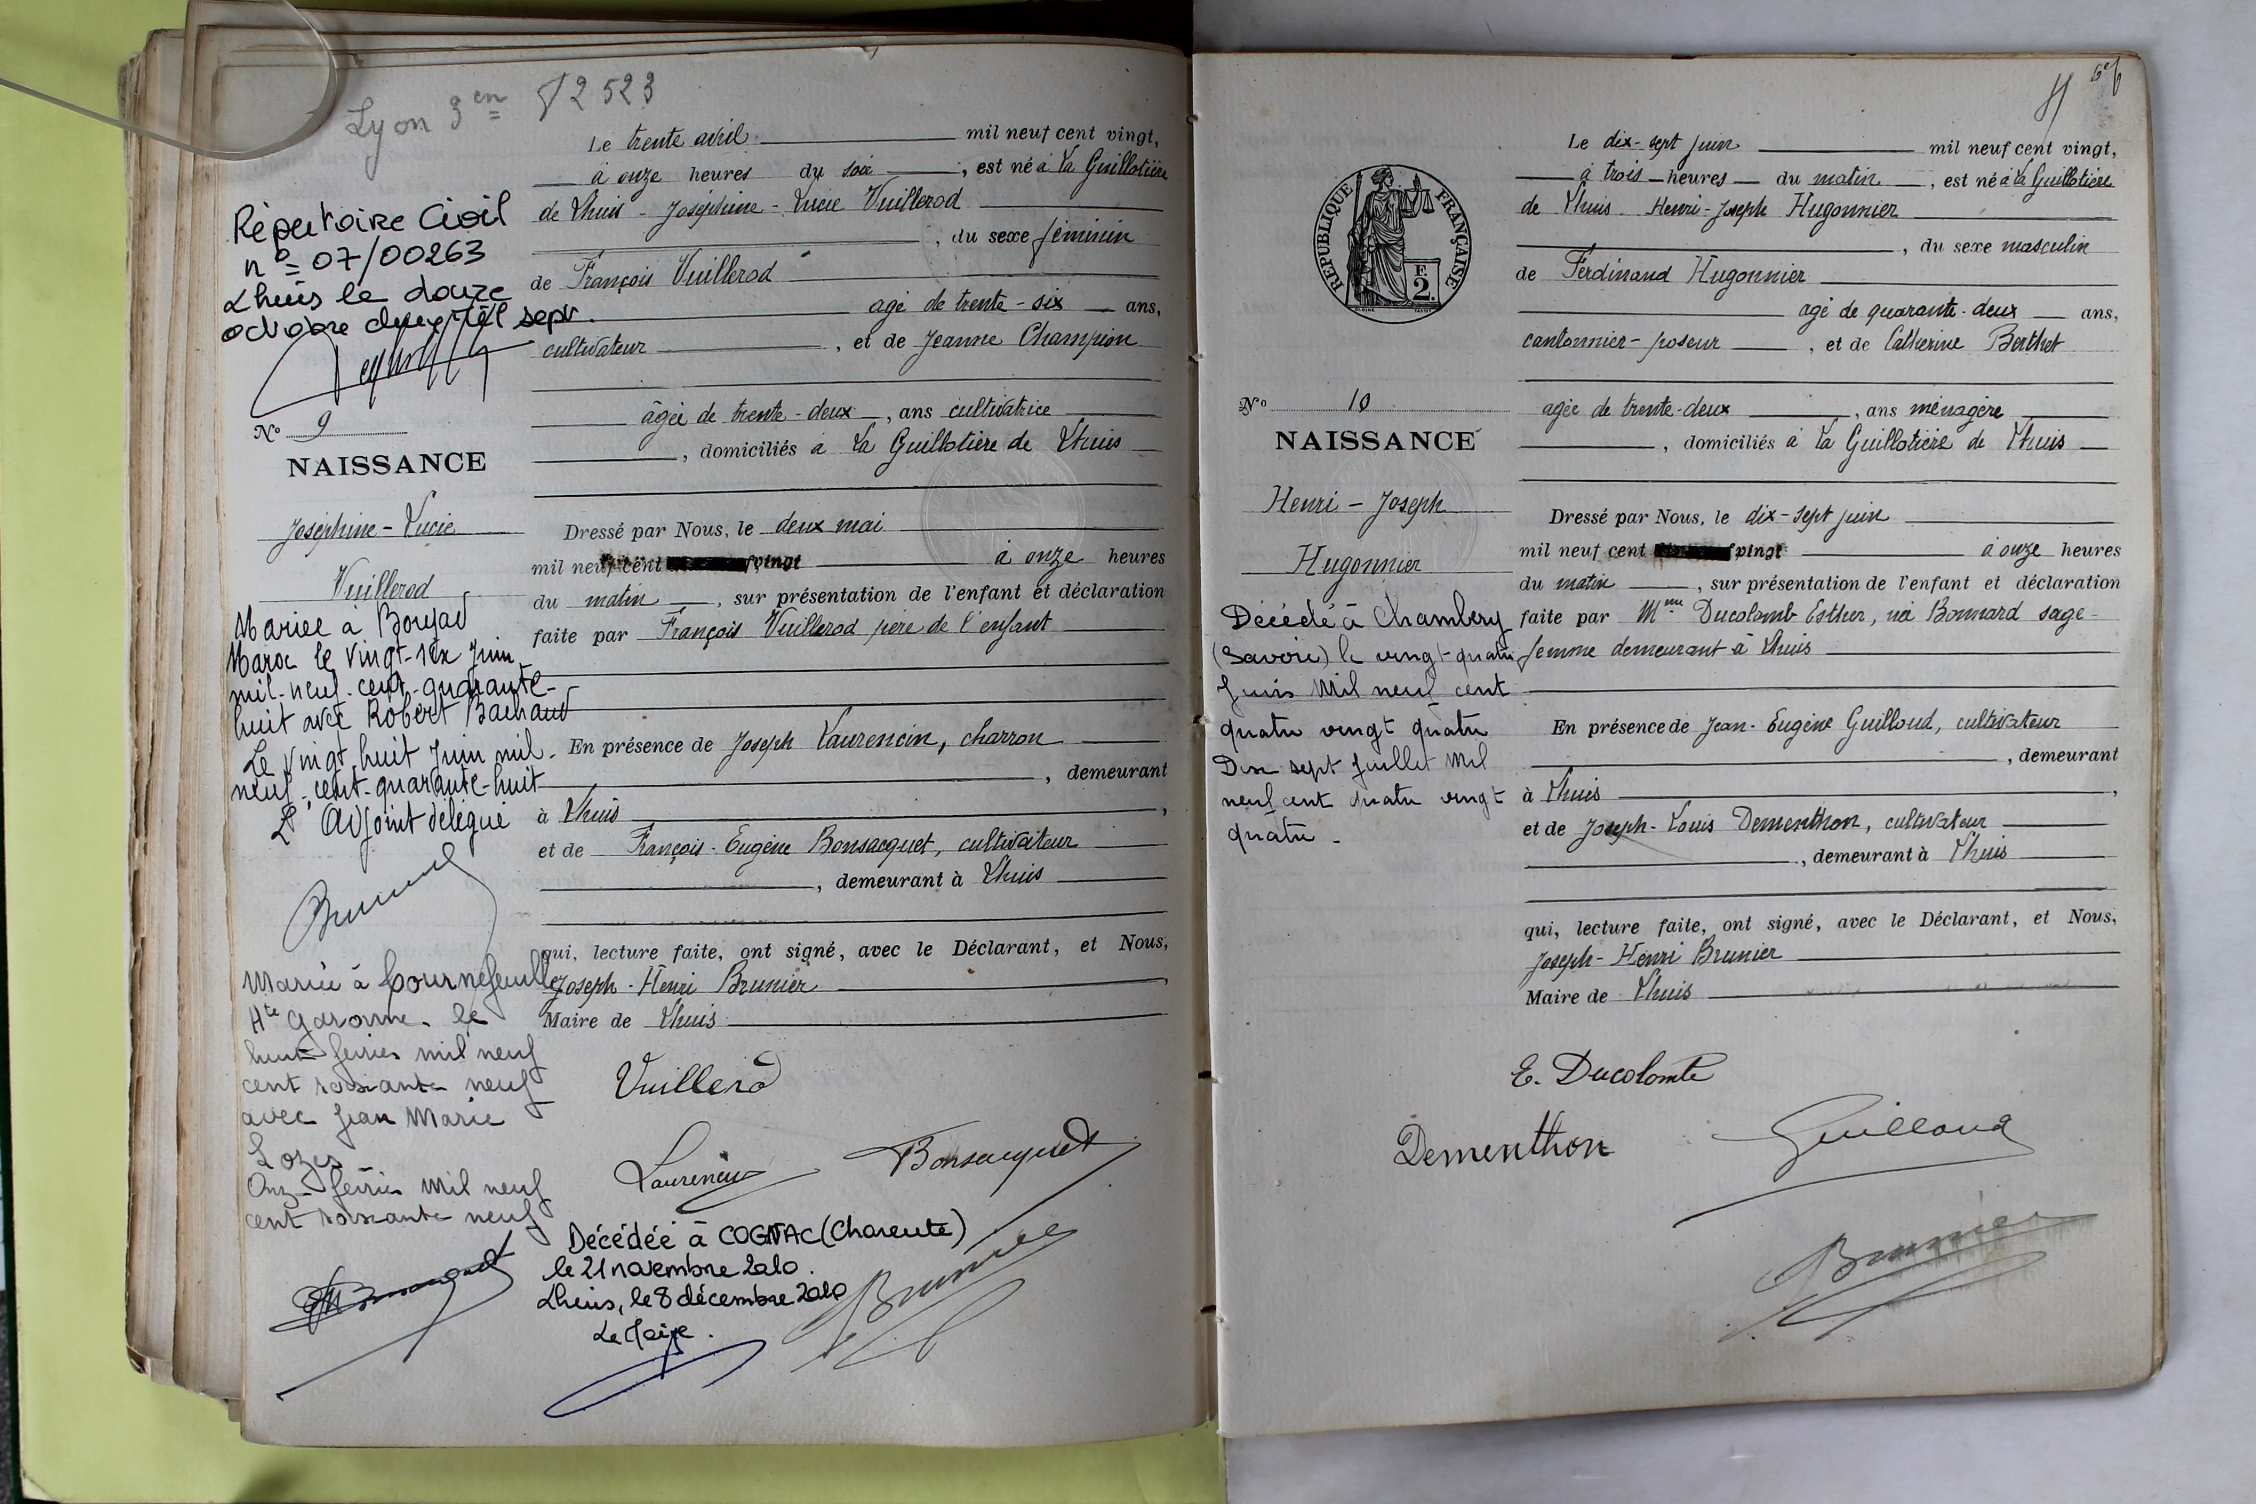 Lyon 3 en 52 523
Le trente avril mil neuf cent vingt,
à onze heures du soir, est né à La Guillotière
de Lhuis - Joséphine - Lucie Vuillerod
, du sexe féminin
de François Vuillerod
agé de trente-six ans,
cultivateur, et de Jeanne Champion
âgée de trente-deux, ans cultivatrice
, domiciliés à La Guillotière de Lhuis
Dressé par Nous, le deux mai
mil neuf cent vingt à onze heures
du matin, sur présentation de l'enfant et déclaration
faite par François Vuillerod père de l'enfant
En présence de Joseph Laurencin, charron
, demeurant
à Lhuis,
et de François-Eugène Bonsacquet, cultivateur
, demeurant à Lhuis
qui, lecture faite, ont signé, avec le Déclarant, et Nous,
Joseph-Henri Brunier,
Maire de Lhuis
Vuillerod
Laurencin Bonsacquet
Brunier
Répertoire Civil
n° = 07/00263
Lhuis le douze
octobre deux mil sept.
N° 9
NAISSANCE
Joséphine-Lucie
Vuillerod
Mariée à Boujad
Maroc le vingt-six juin
mil-neuf-cent-quarante-
huit avec Robert Bachaud
Le vingt huit juin mil-
neuf-cent-quarante-huit
L'Adjoint délégué
Mariée à Tournefeuille
Hte Garonne. le
huit février mil neuf
cent soixante neuf
avec Jean Marie
Lozes
Onze février mil neuf
cent soixante neuf
Décédée à COGNAC (Charente)
le 21 novembre 2010.
Lhuis, le 8 décembre 2010
Le Maire.
Le dix-sept juin mil neuf cent vingt,
à trois heures du matin, est né à La Guillotière
de Lhuis Henri-Joseph Hugonnier
, du sexe masculin
de Ferdinand Hugonnier
agé de quarante-deux ans,
cantonnier-poseur, et de Catherine Berthet
agée de trente-deux, ans ménagère
, domiciliés à La Guillotière de Lhuis
Dressé par Nous, le dix-sept juin
mil neuf cent vingt à onze heures
du matin, sur présentation de l'enfant et déclaration
faite par Mme Ducolomb Esther, née Bonnard sage-
femme demeurant à Lhuis
En présence de Jean-Eugène Guilloud, cultivateur
, demeurant
à Lhuis,
et de Joseph-Louis Dementhon, cultivateur
, demeurant à Lhuis
qui, lecture faite, ont signé, avec le Déclarant, et Nous,
Joseph-Henri Brunier
Maire de Lhuis
E. Ducolomb
Dementhon Guilloud
Brunier
RÉPUBLIQUE FRANÇAISE
F.
2.
N° 10
NAISSANCE
Henri-Joseph
Hugonnier
Décédé à Chambéry
(Savoie) le vingt-quatre
Juin Mil neuf cent
quatre vingt quatre
Dix sept Juillet Mil
neuf cent quatre vingt
quatre -